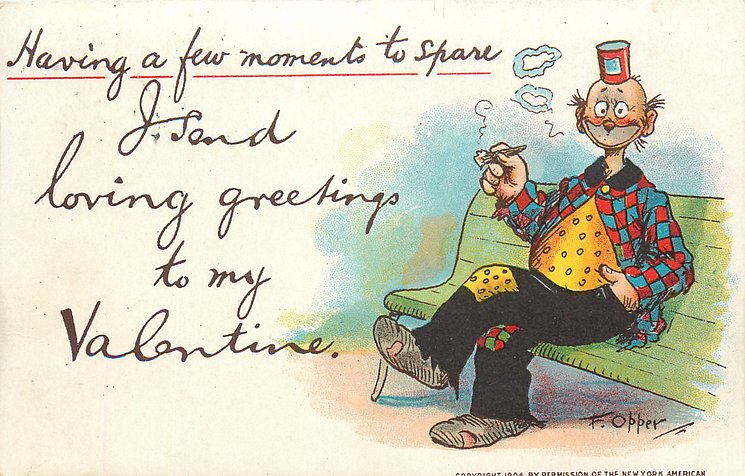 Having a few moments to spare
I send
loving greetings
to my
Valentine.
F. Opper
COPYRIGHT 1904 BY PERMISSION OF THE NEW YORK AMERICAN